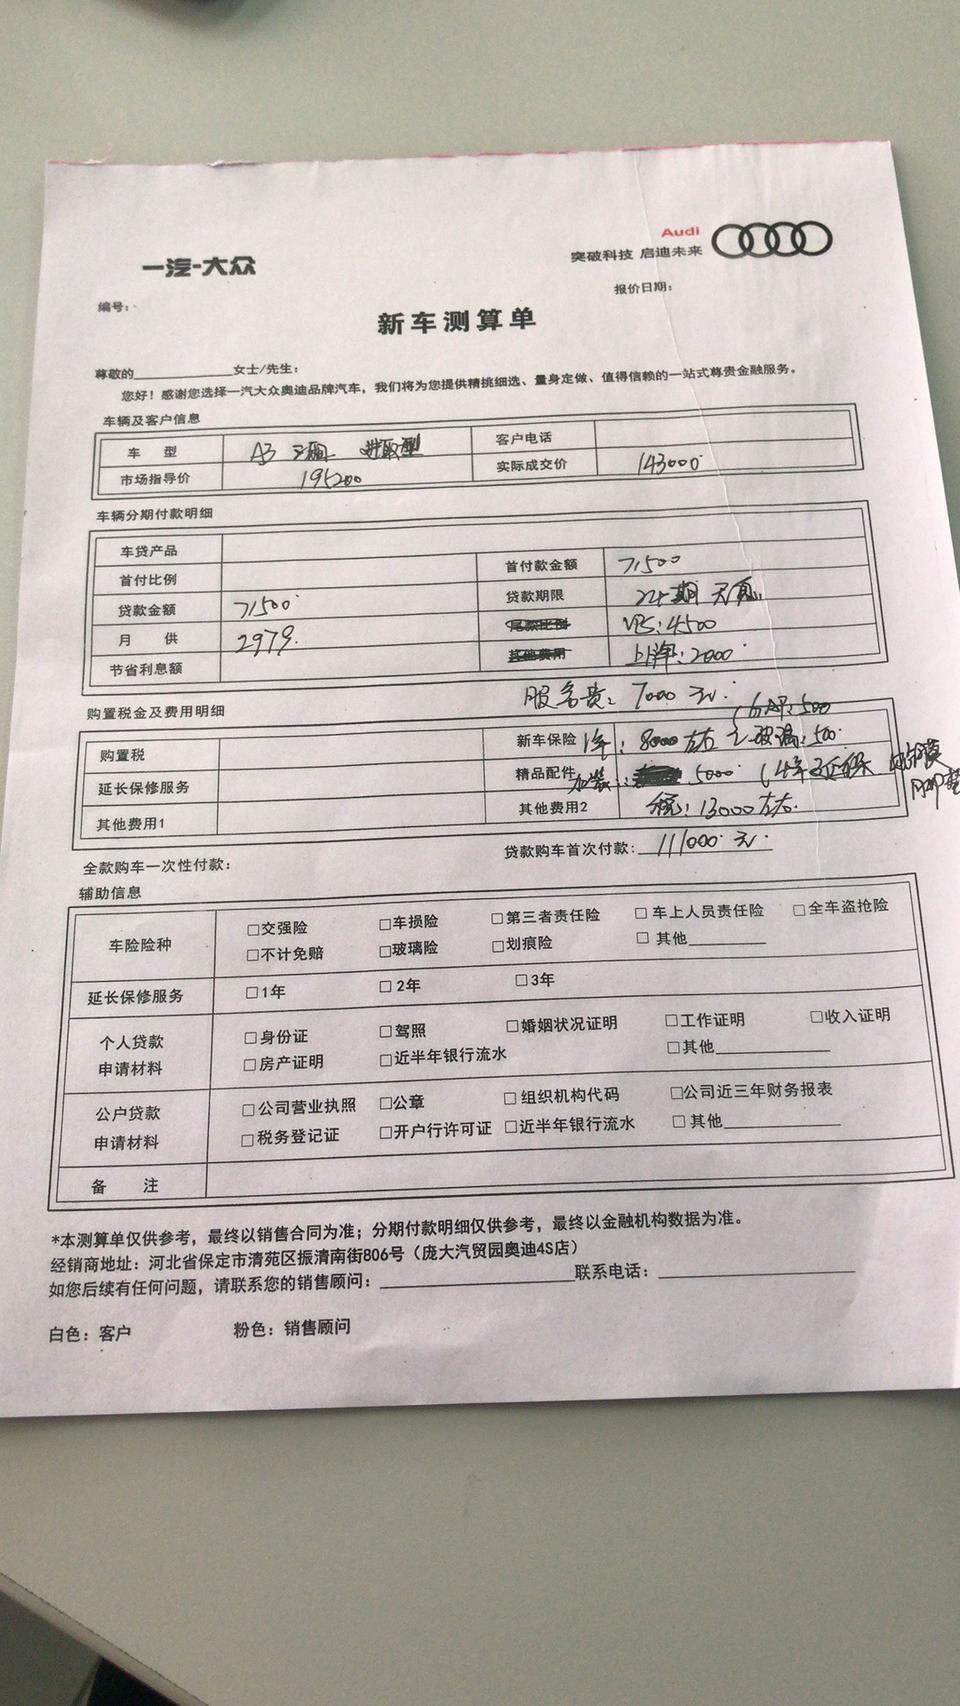 一汽-大众
Audi
突破科技 启迪未来
编号:
报价日期:
新车测算单
尊敬的 女士/先生:
您好!感谢您选择一汽大众奥迪品牌汽车,我们将为您提供精挑细选、量身定做、值得信赖的一站式尊贵金融服务。
车辆及客户信息
车 型 A3 三厢 进取型 客户电话
市场指导价 195200 实际成交价 143000
车辆分期付款明细
车贷产品
首付比例 首付款金额 71500
贷款金额 71500 贷款期限 24期
月 供 2979. 尾款比例 VPS:4500
节省利息额 其他费用 上牌:2000
服务费:7000元.
购置税金及费用明细
GAP:500
购置税 新车保险 1年:8000左右 玻璃:500
延长保修服务 精品配件 加装: 5000 (4年 延保
脚垫
其他费用1 其他费用2 税:13000左右.
全款购车一次性付款: 贷款购车首次付款: 111000元.
辅助信息
车险险种 □交强险 □车损险 □第三者责任险 □车上人员责任险 □全车盗抢险
□不计免赔 □玻璃险 □划痕险 □其他
延长保修服务 □1年 □2年 □3年
个人贷款 申请材料 □身份证 □驾照 □婚姻状况证明 □工作证明 □收入证明
□房产证明 □近半年银行流水 □其他
公户贷款 申请材料 □公司营业执照 □公章 □组织机构代码 □公司近三年财务报表
□税务登记证 □开户行许可证 □近半年银行流水 □其他
备 注
*本测算单仅供参考,最终以销售合同为准;分期付款明细仅供参考,最终以金融机构数据为准。
经销商地址:河北省保定市清苑区振清南街806号(庞大汽贸园奥迪4S店)
如您后续有任何问题,请联系您的销售顾问: 联系电话:
白色:客户 粉色:销售顾问